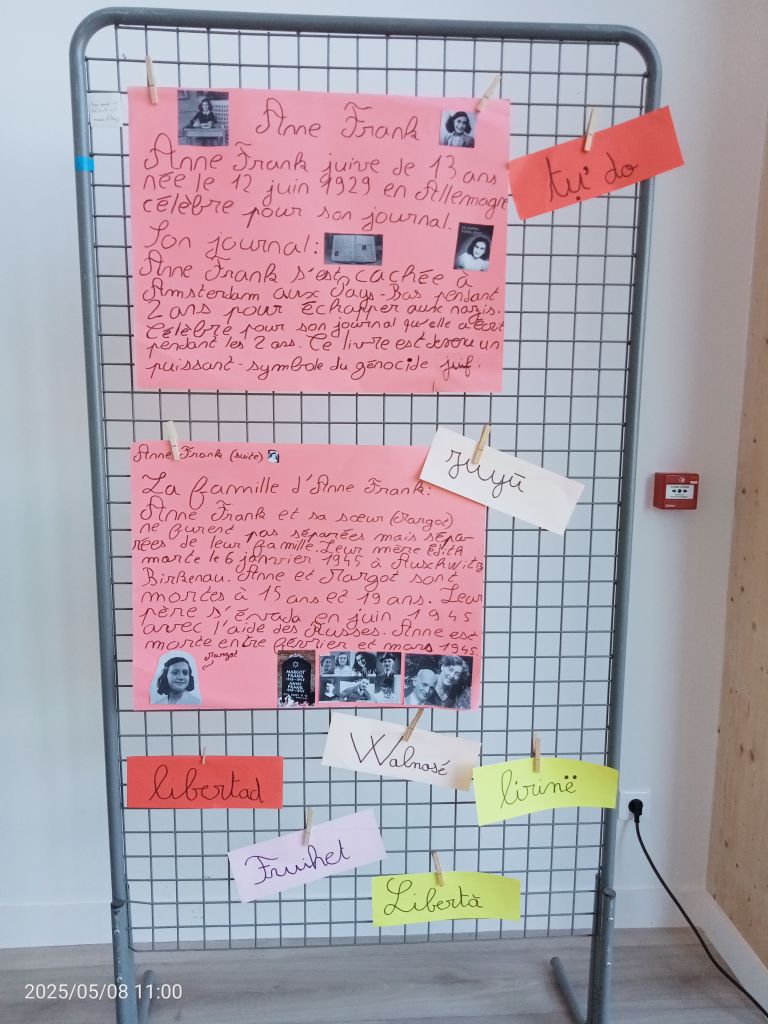 Anne Frank
Anne Frank juive de 13 ans
née le 12 juin 1929 en Allemagne
célèbre pour son journal.
Son journal:
Anne Frank s'est cachée à
Amsterdam aux Pays-Bas pendant
2 ans pour échapper aux nazis.
Célèbre pour son journal qu'elle a écrit
pendant les 2 ans. Ce livre est devenu un
puissant symbole du génocide juif.
tự do
Anne Frank (suite)
La famille d'Anne Frank:
Anne Frank et sa sœur (Margot)
ne furent pas séparées mais sépa-
rées de leur famille. Leur mère Edith
morte le 6 janvier 1945 à Auschwitz
Birkenau. Anne et Margot sont
mortes à 15 ans et 19 ans. Leur
père s'évada en juin 1945
avec l'aide des Russes. Anne est
morte entre février et mars 1945.
Margot
MARGOT
FRANK
ANNE
FRANK
zuyū
Walnosé
libertad
lirinë
Fruihet
Libertà
2025/05/08 11:00